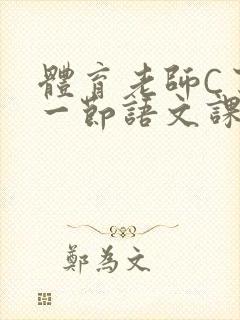 體育老師C
一節語文課
鄭為文